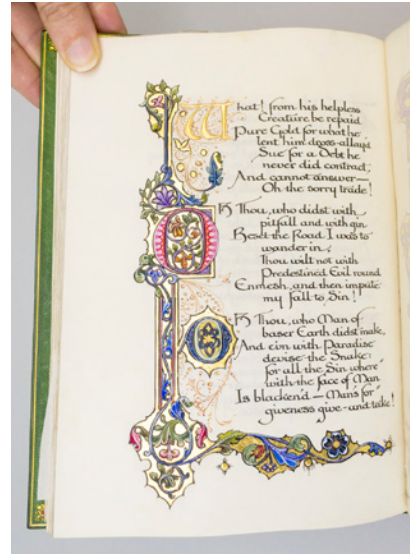 What! from his helpless
Creature be repaid
Pure Gold for what he
lent him dross-allay'd
Sue for a Debt he
never did contract,
And cannot answer—
Oh the sorry trade!
Oh Thou, who didst with
pitfall and with gin
Beset the Road I was to
wander in,
Thou wilt not with
Predestined Evil round
Enmesh, and then impute
my fall to Sin!
Oh Thou, who Man of
baser Earth didst make,
And e'en with Paradise
devise the Snake:
for all the Sin where
with the face of Man
Is blacken'd — Man's for
giveness give - and take!